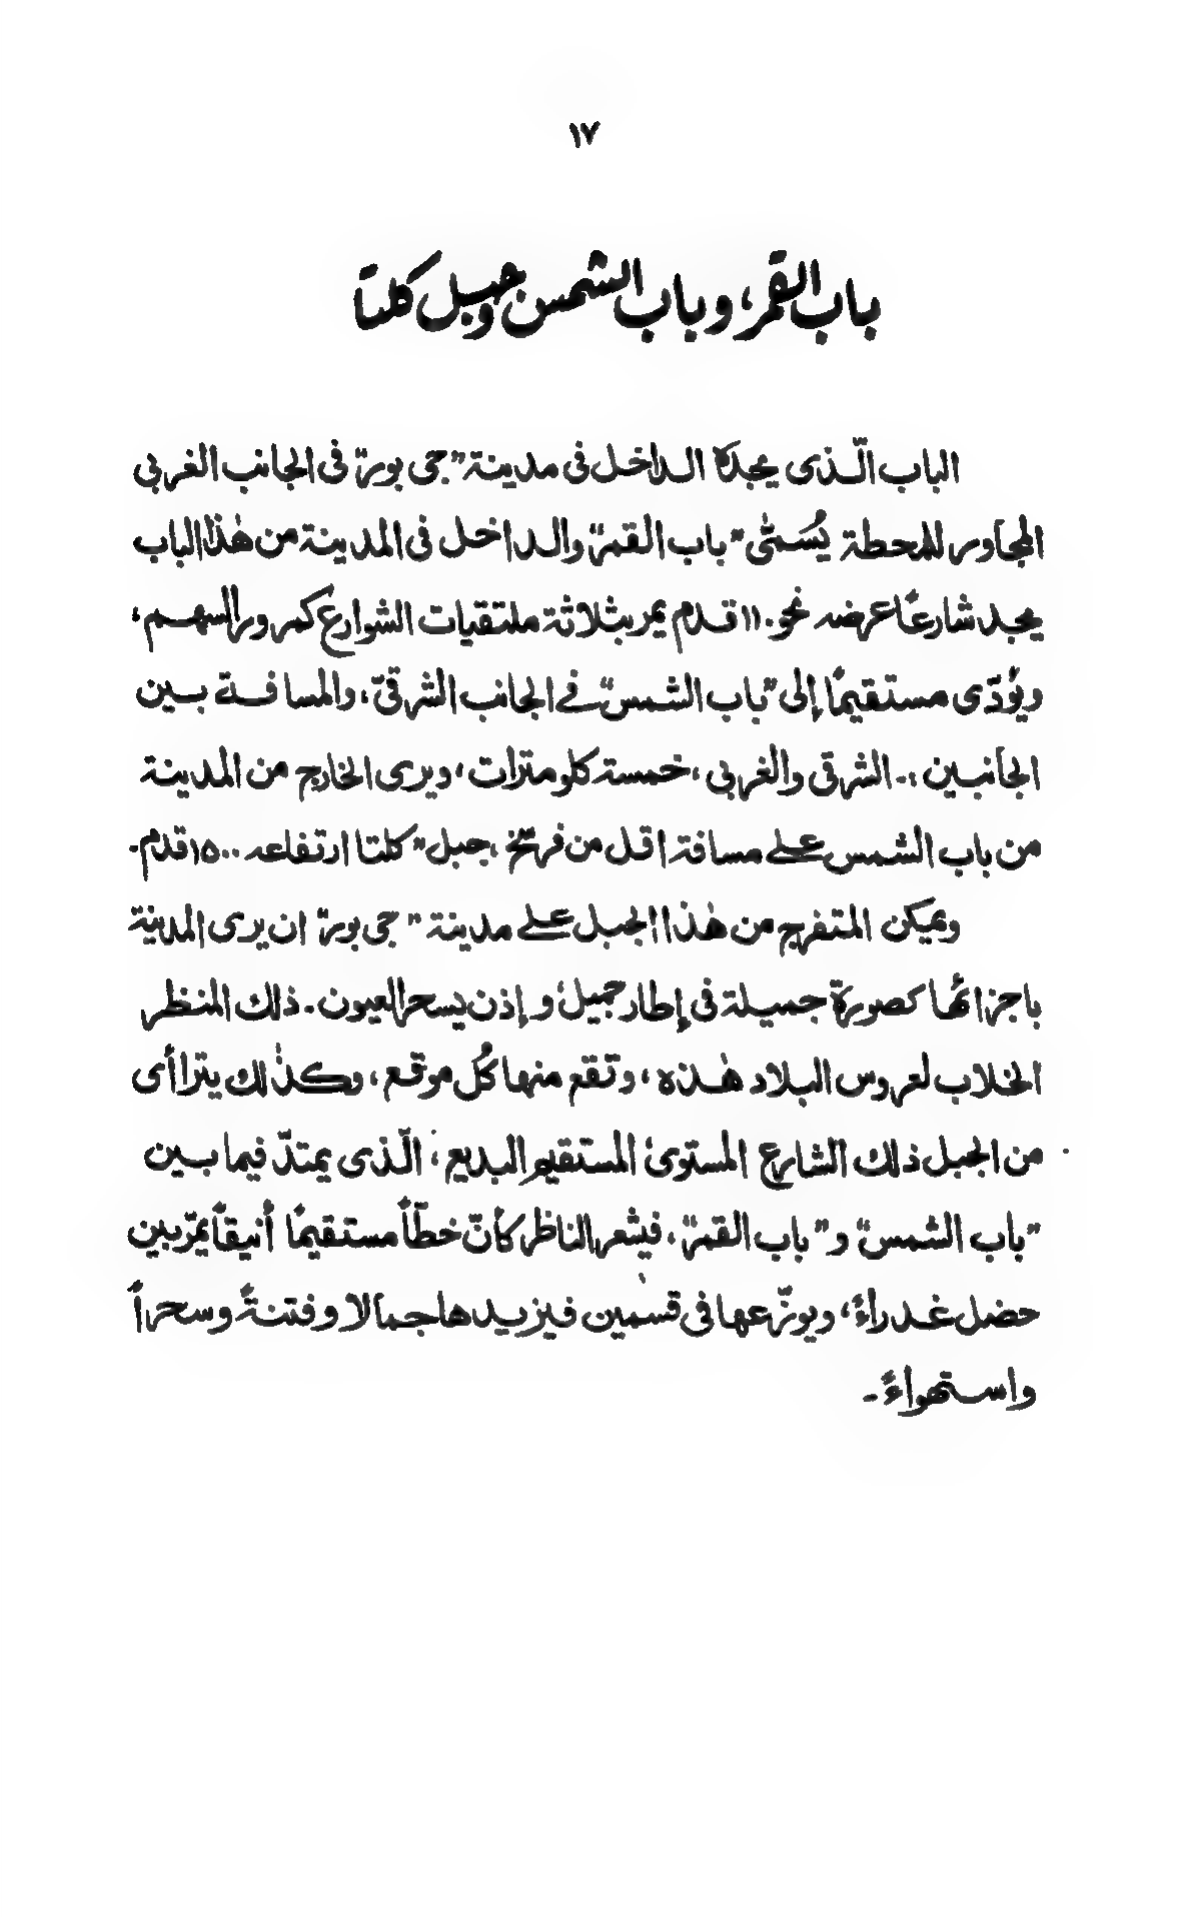 ١٧
باب القمر، وباب الشمس وجبل كلتا
الباب الّذى يجدهُ الداخل فى مدينة "جى بور" فى الجانب الغربى
المجاور للمحطة يُسَمّٰى "باب القمر" والداخل فى المدينة من هٰذا الباب
يجد شارعًا عرضه نحو ١١٠ قدم يمر بثلاثة ملتقيات الشوارع كمرور السهم،
ويؤدّى مستقيمًا إلى "باب الشمس" في الجانب الشرقىّ، والمسافة بين
الجانبين ،- الشرقى والغربى ، خمسة كلو مترات ، ويرى الخارج من المدينة
من باب الشمس على مسافة اقل من فرسخ ، جبل "كلتا ارتفاعه ١٥٠٠ قدم-
ويمكن المتفرج من هٰذا الجبل على مدينة "جى بور" ان يرى المدينة
باجزائها كصورة جميلة فى إطار جميل، وإذن يسحر العيون - ذلك المنظر
الخلاب لعروس البلاد هٰذه ، وتقع منها كُل موقع ، وكذٰلك يتراأى
من الجبل ذلك الشارع المستوىٰ المستقيم البديع ، الّذى يمتدّ فيما بين
"باب الشمس" و"باب القمر"، فيشعر الناظر كأنّ خطّاً مستقيمًا أنيقاً يمرّ بين
حضل غدراءً، ويوزّعها فى قسمين فيزيدها جمالا وفتنةً وسحراً
واستهواءً -